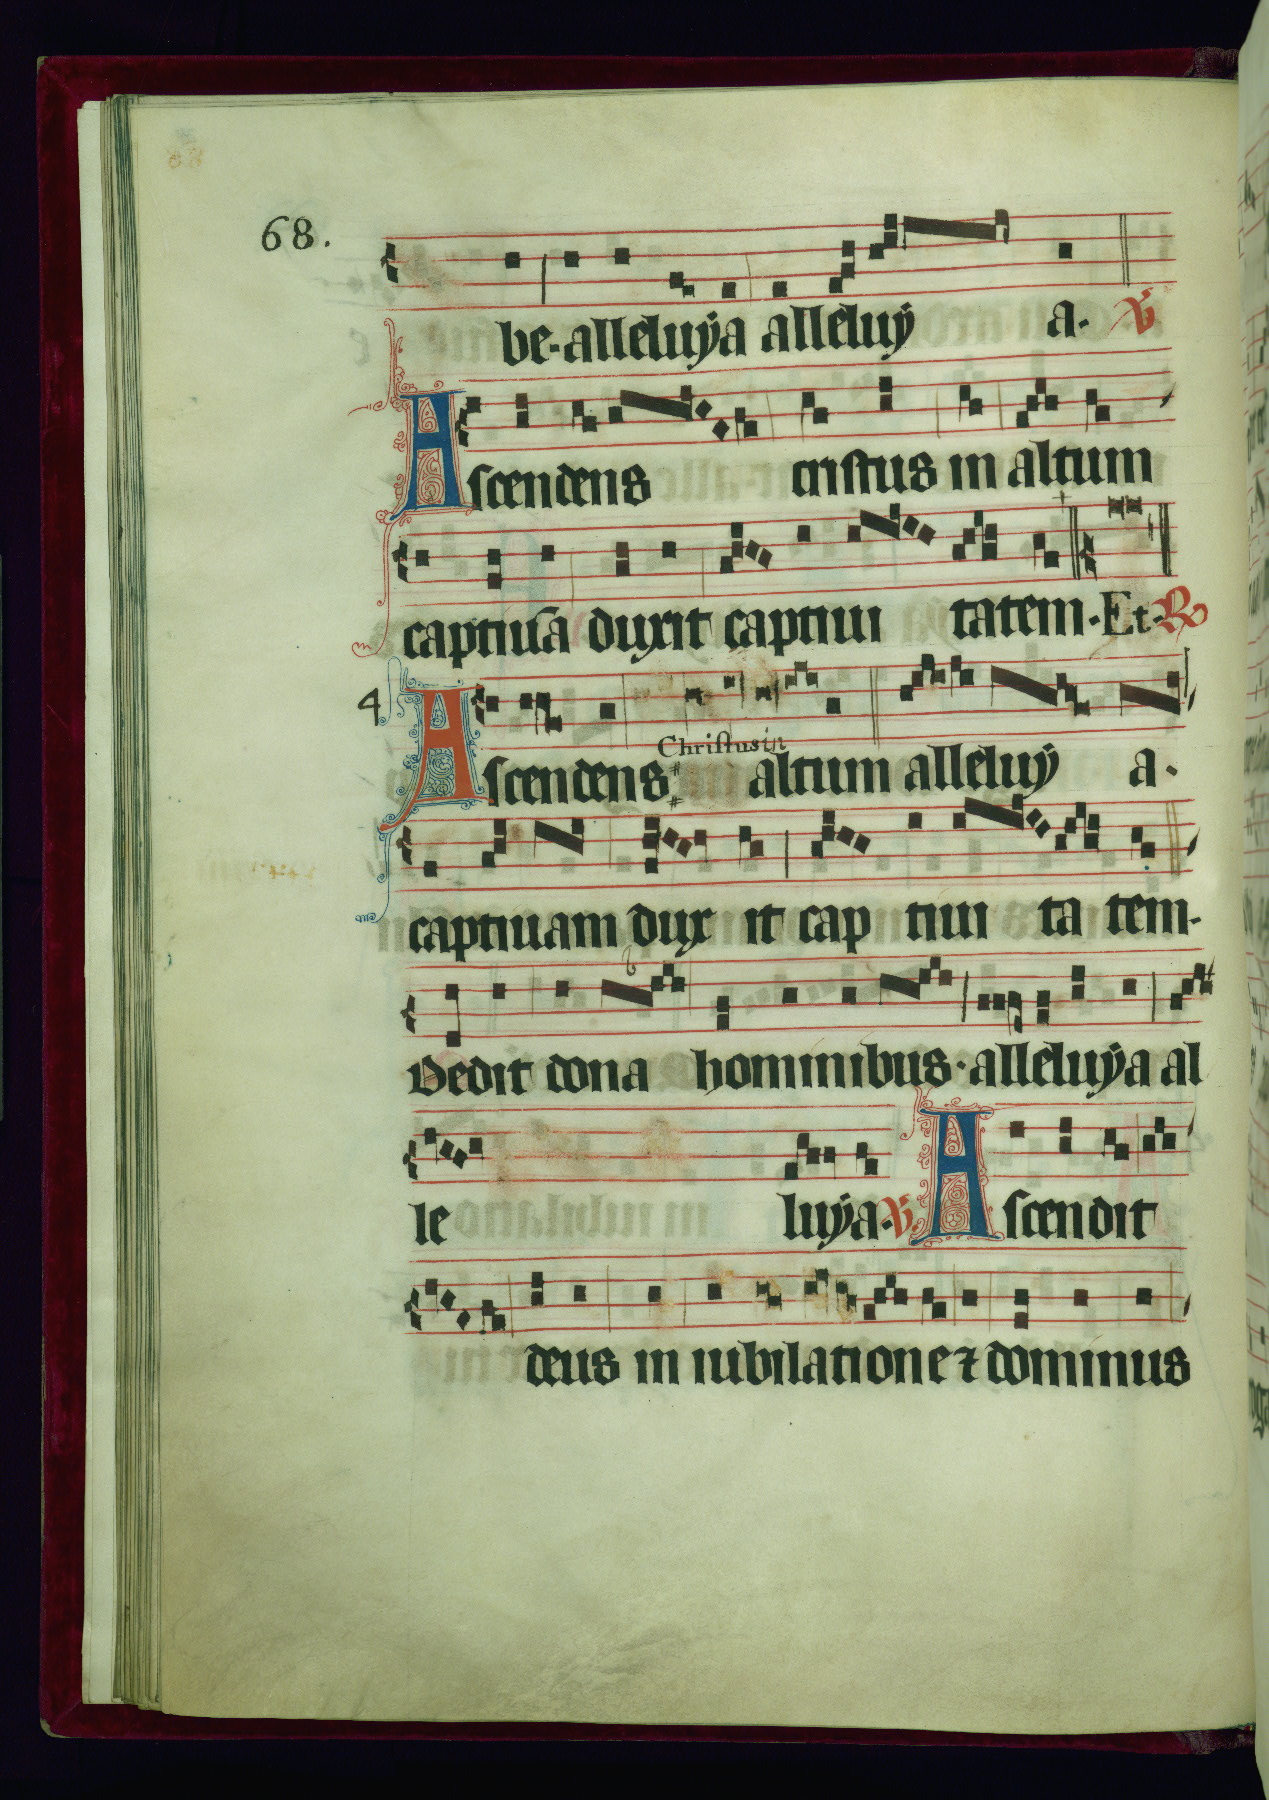 68.
be-alleluÿa alleluÿ a. ℣
Ascendens cristus in altum
captiua duxit captiui tatem. Et. ℟
4
Christus in
Ascendens altum alleluÿ a.
captiuam dux it cap tiui ta tem.
Dedit dona hominibus. alleluÿa al
le luÿa. ℣. Ascendit
deus in iubilatione ⁊ dominus